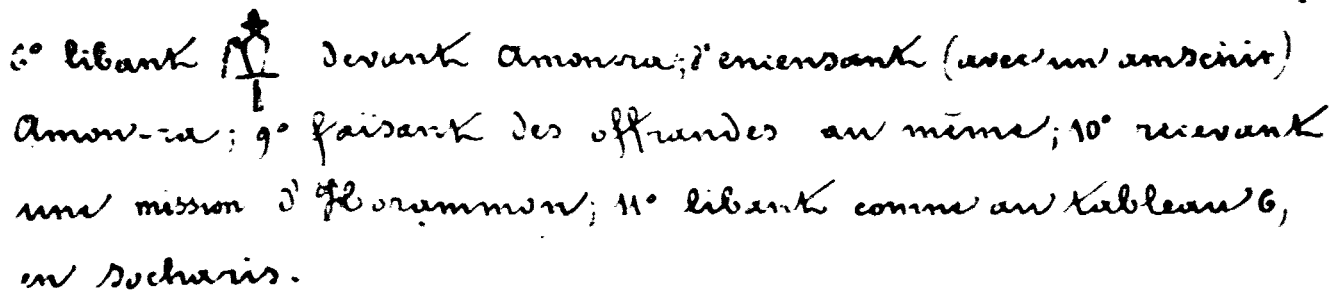 6° libant devant Amon-ra; 8° encensant (avec un amschir)
Amon-ra; 9° faisant des offrandes au même; 10° recevant
une mission d'Horammon; 11° libant comme au tableau 6,
en Socharis.